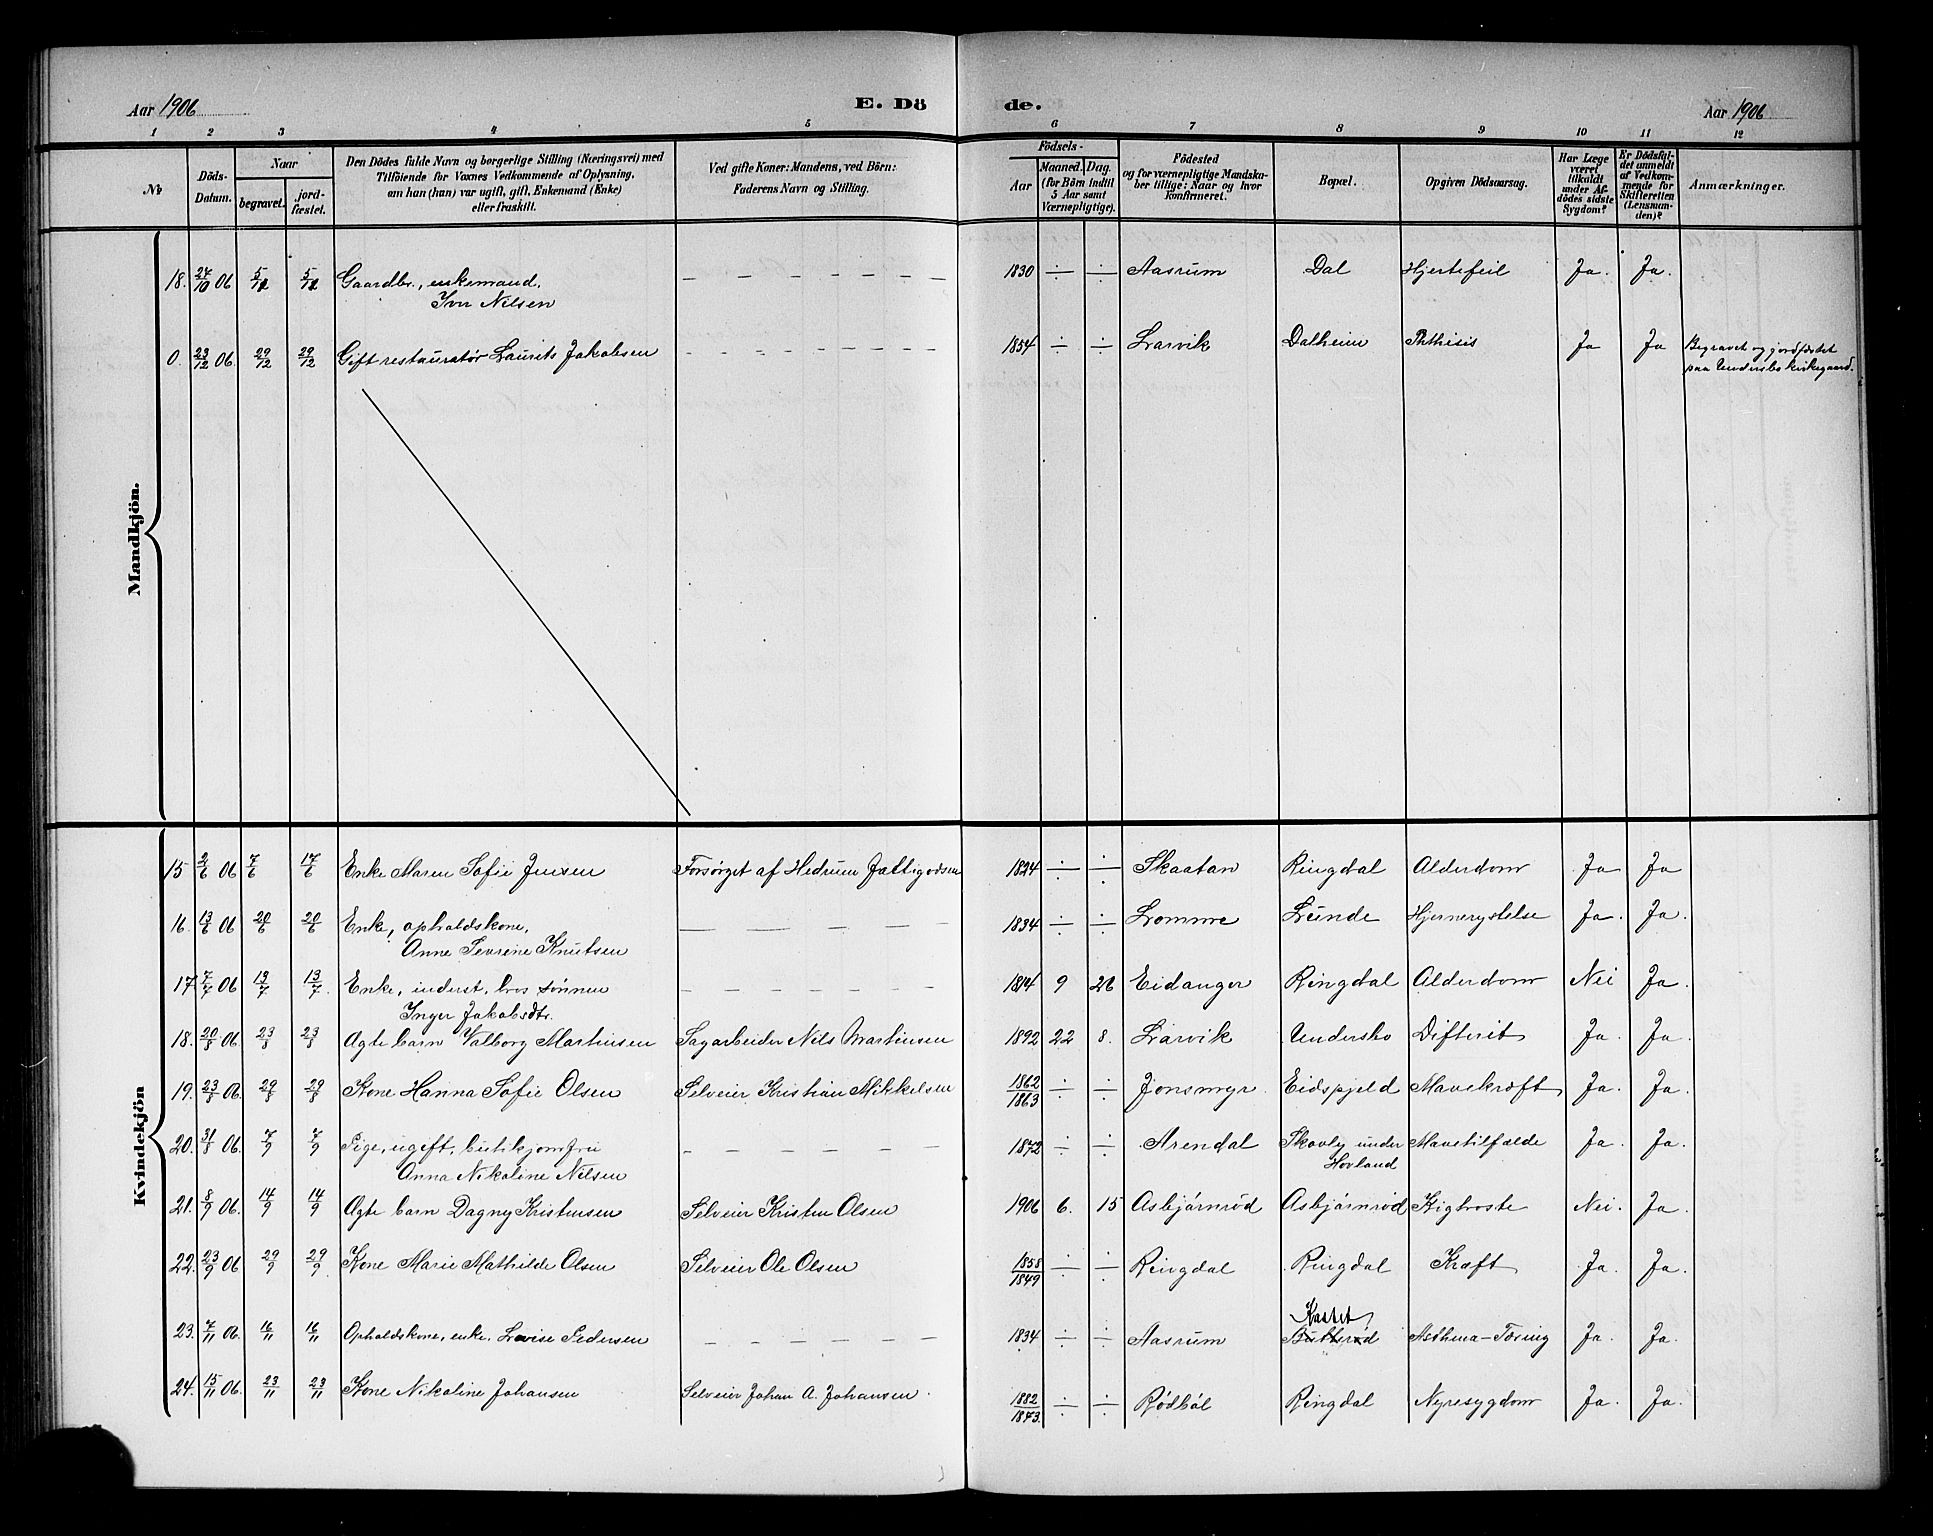 Aar 1906 E. Dö de. Aar 1906
1 2 3 4 5 6 7 8 9 10 11 12
№ Döds-Datum. Naar begravet. jordfæstet. Den Dödes fulde Navn og borgerlige Stilling (Næringsvei) med Tilföiende for Voxnes Vedkommende af Oplysning, om han (hun) var ugift, gift, Enkemand (Enke) eller fraskilt. Ved gifte Koner: Mandens, ved Börn: Faderens Navn og Stilling. Födsels- Aar Maaned. Dag. (for Börn indtil 5 Aar samt Værnepligtige). Födested og for værnepligtige Mandskaber tillige: Naar og hvor konfirmeret. Bopæl. Opgiven Dödsaarsag. Har Læge været tilkaldt under Afdödes sidste Sygdom? Er Dödsfaldet anmeldt af Vedkommende for Skifteretten (Lensmanden)? Anmærkninger.
Mandkjön.
18. 24/10 06 5/12 5/12 Gaardbr., enkemand, — — — — — — 1830 ÷ ÷ Aasrum Dal Hjertefeil Ja. Ja.
Iver Nilsen
0. 23/12 06. 29/12 29/12 Gift restauratør Laurits Jakobsen — — — — — — 1854 ÷ ÷ Larvik Dalheim Phthisis Ja Ja Begravet og jordfæstet
paa Undersbo kirkegaard.
Kvindekjön
15 2/6 06 7/6 17/6 Enke Maren Sofie Jensen Forsørget af Hedrum Fattigvæsen 1824 ÷ ÷ Skaatan Ringdal Alderdom Ja Ja
16. 13/6 06 20/6 20/6 Enke, opholdskone, — — — — — 1834 ÷ ÷ Lomme Lunde Hjernerystelse Ja. Ja.
Anne Severine Knutsen
17 7/7 06 13/7 13/7. Enke, inderst, hos sønnen — — — — — — 1814 9 26 Eidanger Ringdal Alderdom Nei Ja.
Inger Jakobsdtr.
18. 20/8 06. 23/8 23/8 Ægte barn Valborg Martinsen Sagarbeider Nils Martinsen 1892 22 8. Larvik Undersbo Difterit Ja. Ja.
19. 23/8 06. 29/8 29/8 Kone Hanna Sofie Olsen Selveier Kristian Mikkelsen 1862/1863 ÷ ÷ Jonsmyr Eidsfjeld Mavekræft Ja. Ja.
20. 31/8 06. 7/9 7/9 Pige, ugift, butikjomfru — — — — — — 1872 ÷ ÷ Arendal Skovly under Mavetilfælde Ja. Ja.
Anna Nikoline Nilsen Hovland
21. 8/9 06. 14/9 14/9 Ægte barn Dagny Kristensen Selveier Kristen Olsen 1906 6. 15 Asbjørnrød Asbjørnrød Kighoste Nei. Ja.
22. 23/9 06 29/9 29/9 Kone Marie Mathilde Olsen Selveier Ole Olsen 1858/1849 ÷ ÷ Ringdal Ringdal Kræft Ja. Ja.
Kastet
23. 7/11 06. 16/11 16/11 Opholdskone, enke, Lovise Pedersen — — — — — — 1834 ÷ ÷ Aasrum Asthma-Tæring Ja. Ja.
24. 15/11 06. 23/11 23/11 Kone Nikoline Johansen Selveier Johan A. Johansen. 1882/1873. ÷ ÷ Rødbøl Ringdal Nyresygdom Ja. Ja.